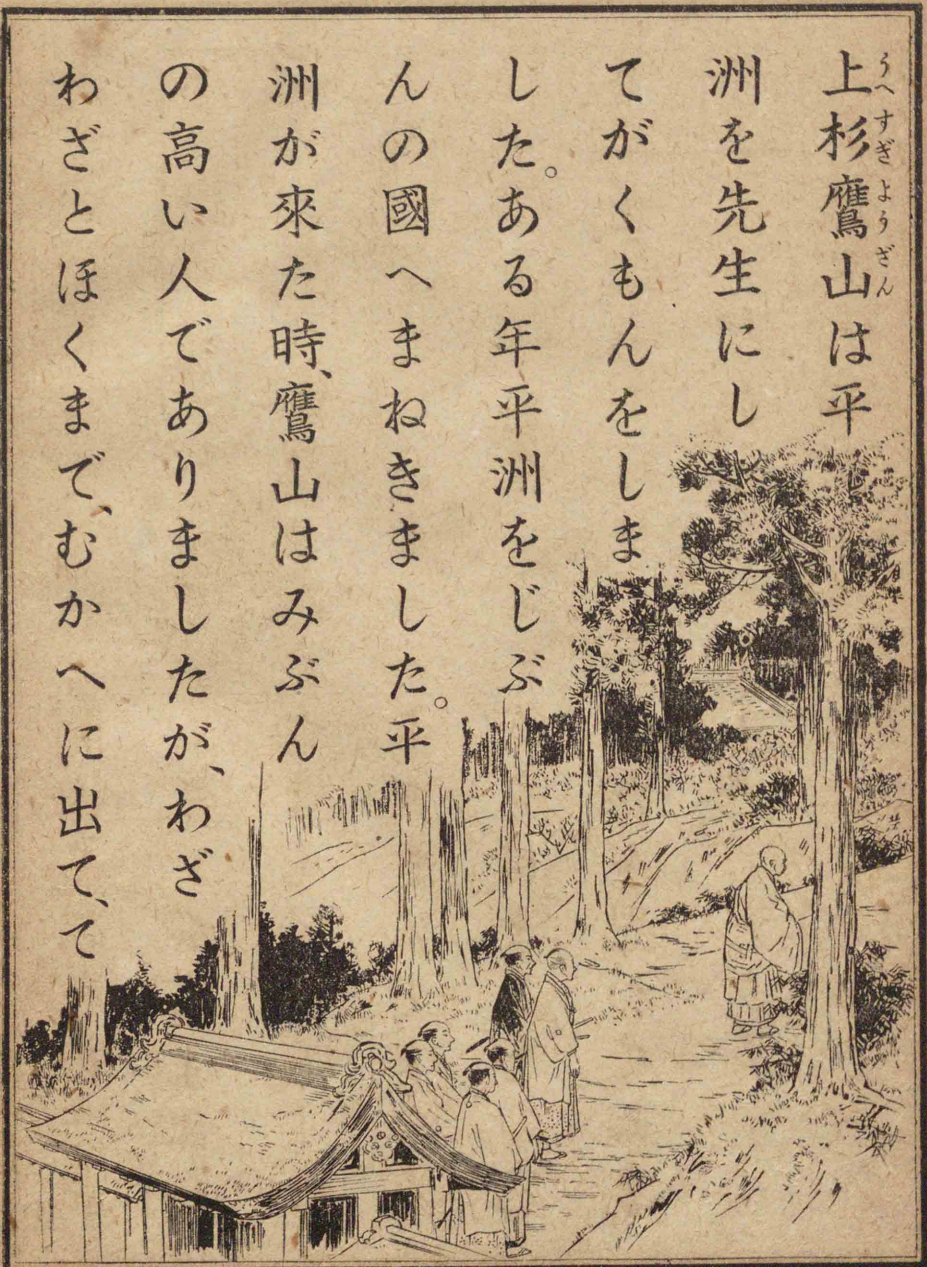 上杉鷹山は平
洲を先生にし
てがくもんをしま
した。ある年平洲をじぶ
んの國へまねきました。平
洲が來た時、鷹山はみぶん
の高い人でありましたが、わざ
わざとほくまで、むかへに出て、て